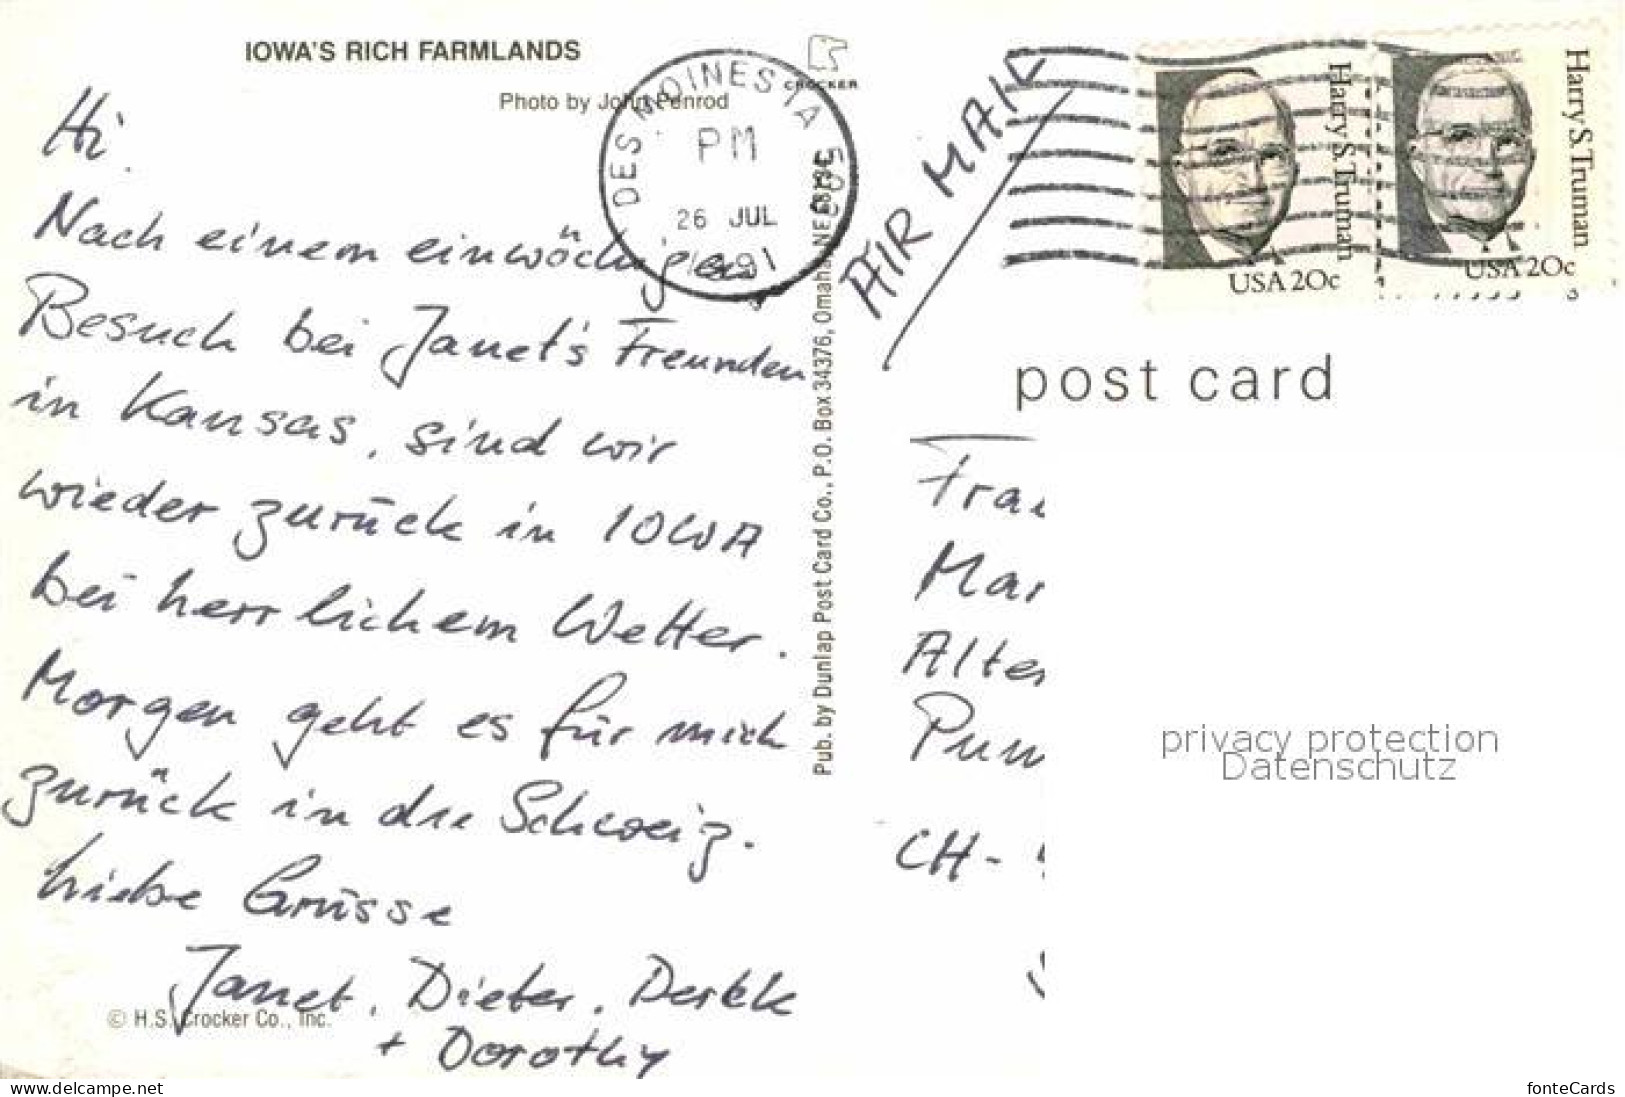 IOWA'S RICH FARMLANDS
Photo by John Penrod
Hi.
Nach einem einwöchigen
Besuch bei Janet's Freunden
in Kansas, sind wir
wieder zurück in IOWA
bei herrlichem Wetter.
Morgen geht es für mich
zurück in die Schweiz.
Liebe Grüsse
Janet, Dieter,
+ Dorothy
© H.S. Crocker Co., Inc.
CROCKER
DES MOINES IA
PM
26 JUL
1991
Pub. by Dunlap Post Card Co., P.O. Box 34376, Omaha,
AIR MAIL
Harry S. Truman
USA 20c
Harry S. Truman
USA 20c
post card
CH-
privacy protection
Datenschutz
www.delcampe.net
fonteCards